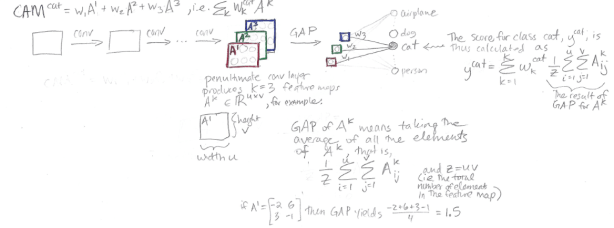 CAM^cat = w₁A¹ + w₂A² + w₃A³, i.e. Σ_k w_k^cat A^k
conv
conv
conv
GAP
A³
A²
A¹
w₃
w₂
w₁
airplane
dog
cat
person
The score for class cat, y^cat, is
thus calculated as
y^cat = Σ_{k=1}^{K} w_k^cat 1/Z Σ_{i=1}^{u} Σ_{j=1}^{v} A_ij^k
The result of
GAP for A^k
penultimate conv layer
produces K=3 feature maps
A^k ∈ ℝ^{u×v}, for example:
A¹
height v
width u
GAP of A^k means taking the
average of all the elements
of A^k, that is,
1/Z Σ_{i=1}^{u} Σ_{j=1}^{v} A_ij^k
and Z=uv
(i.e. the total
number of element
in the feature map)
if A¹ = [-2 6
3 -1] then GAP yields (-2+6+3-1)/4 = 1.5